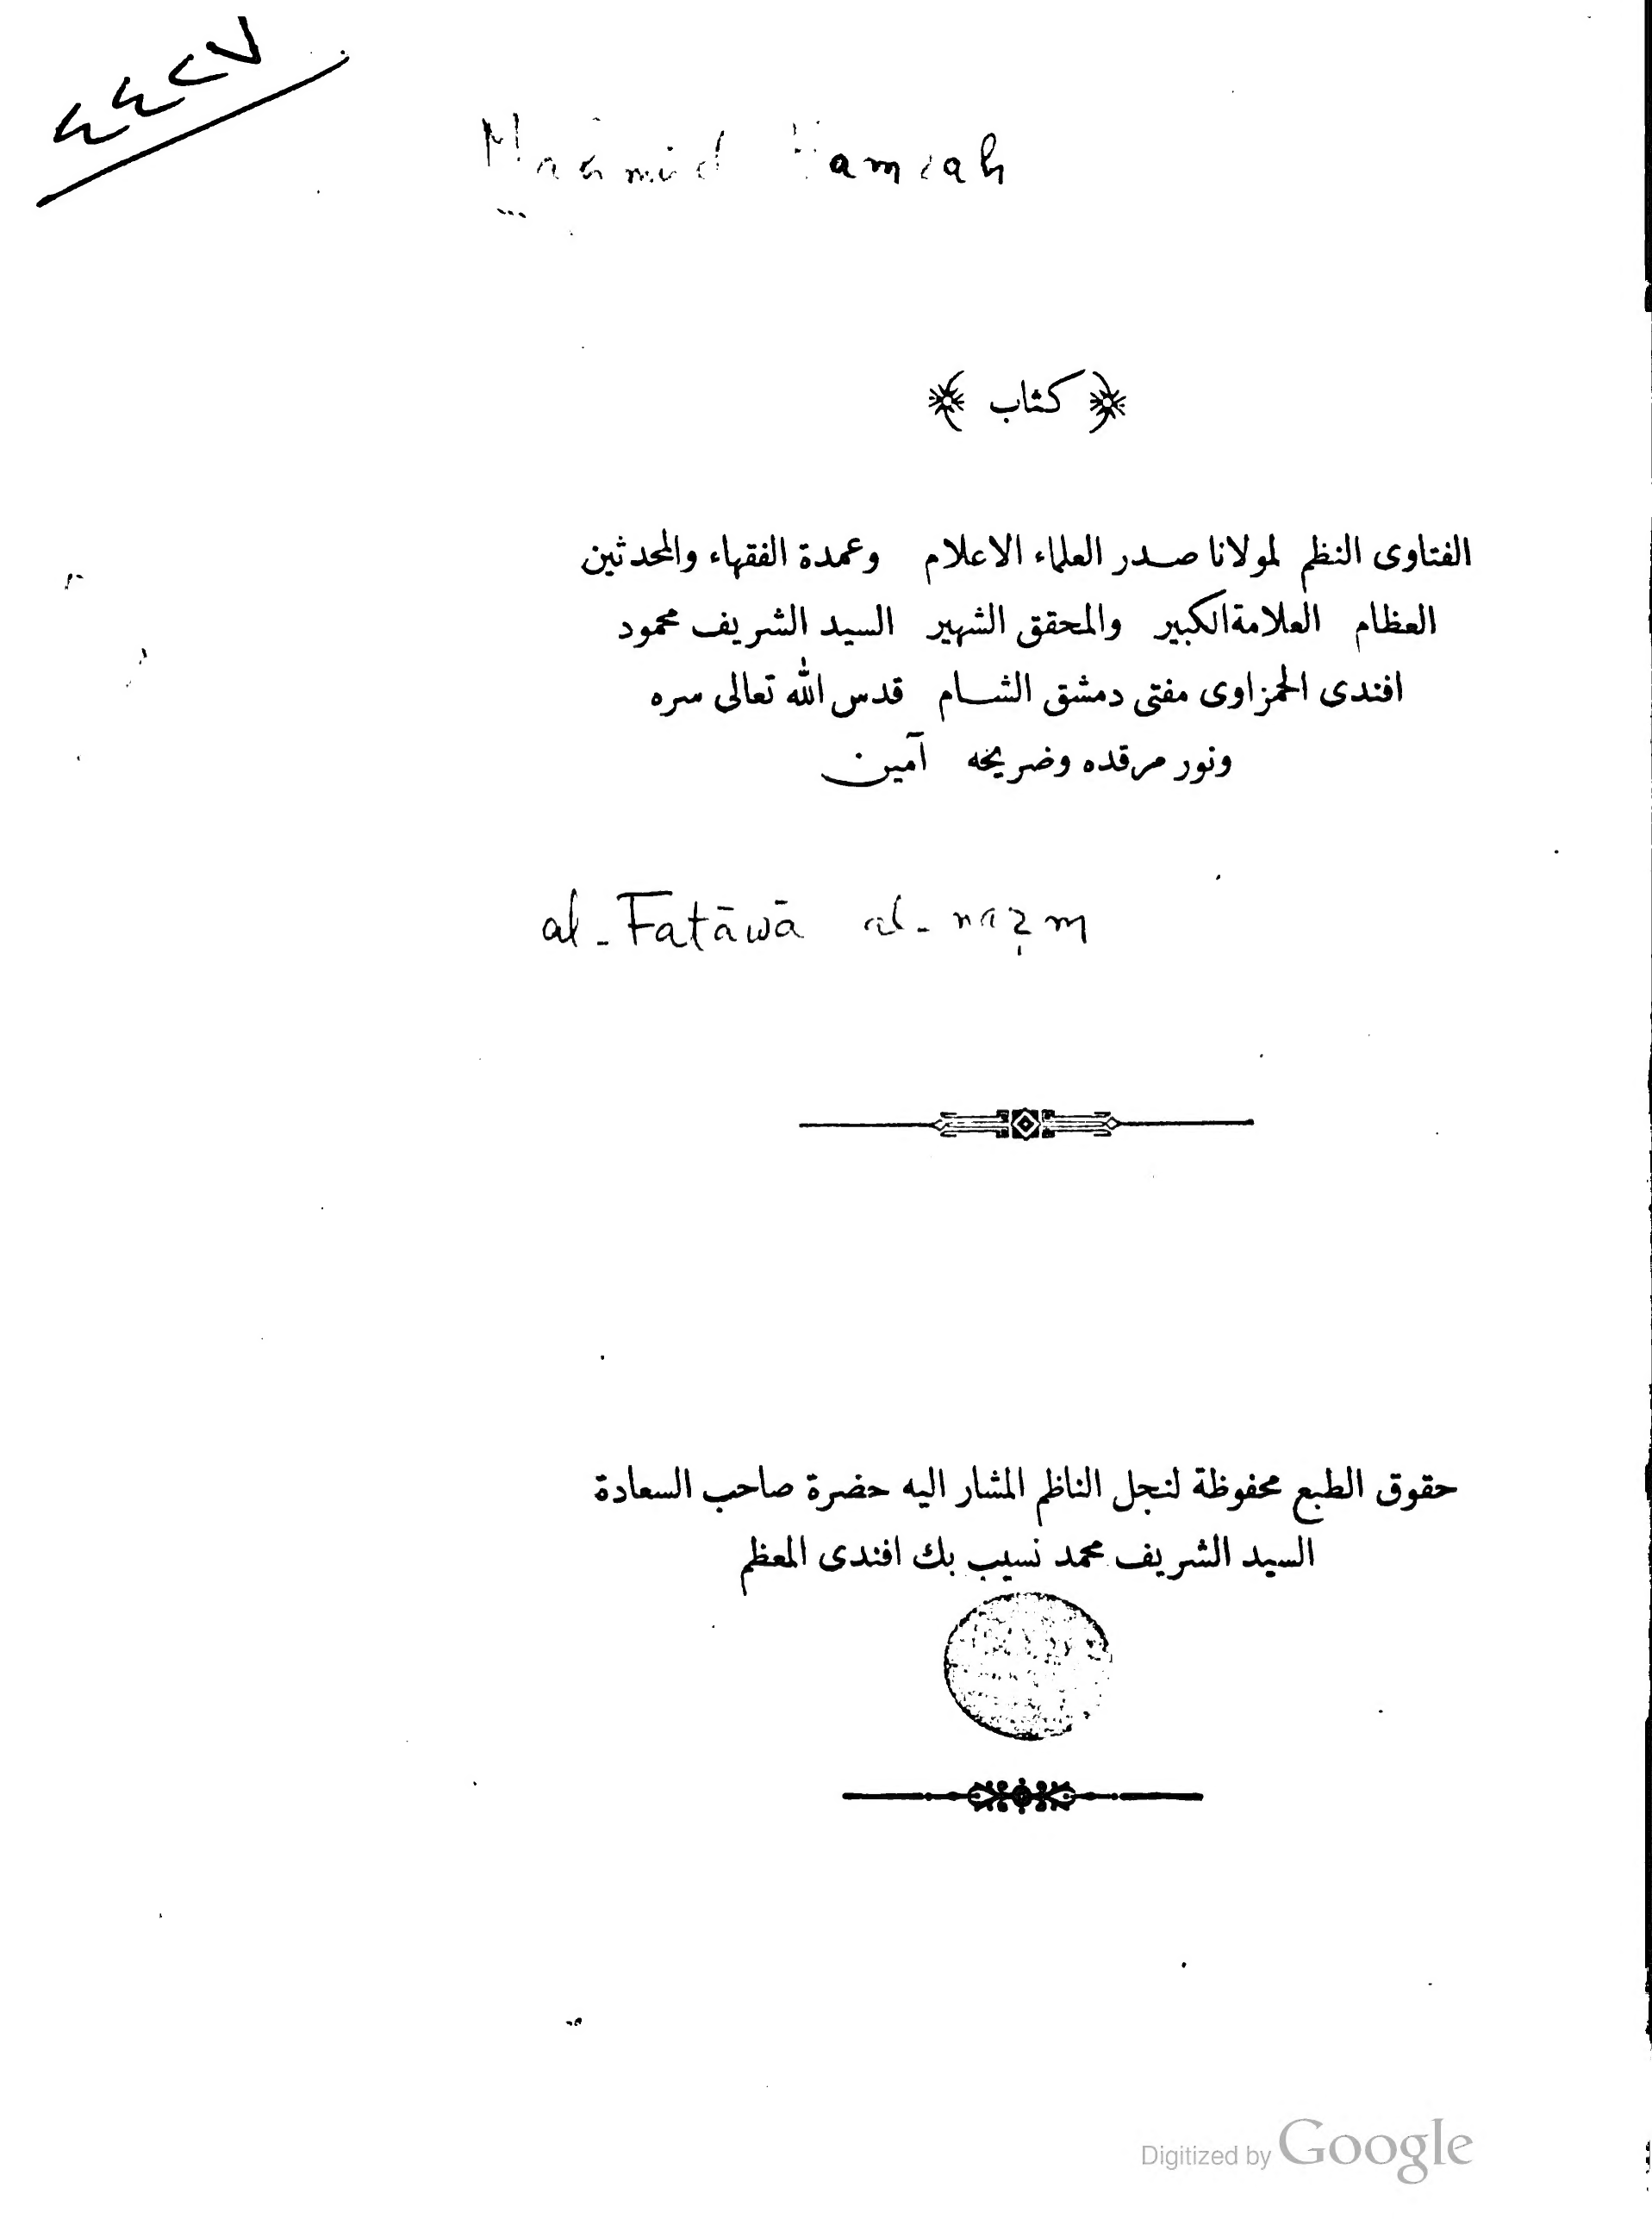 ٤٤٢٧
Mahmud Hamzah
﴿ كتاب ﴾
الفتاوى النظم لمولانا صدر العلماء الاعلام وعمدة الفقهاء والمحدثين
العظام العلامة الكبير والمحقق الشهير السيد الشريف محمود
افندى الحمزاوى مفتى دمشق الشام قدس الله تعالى سره
ونور مرقده وضريحه آمين
al-Fatāwā al-naẓm
حقوق الطبع محفوظة لنجل الناظم المشار اليه حضرة صاحب السعادة
السيد الشريف محمد نسيب بك افندى المعظم
Digitized by Google